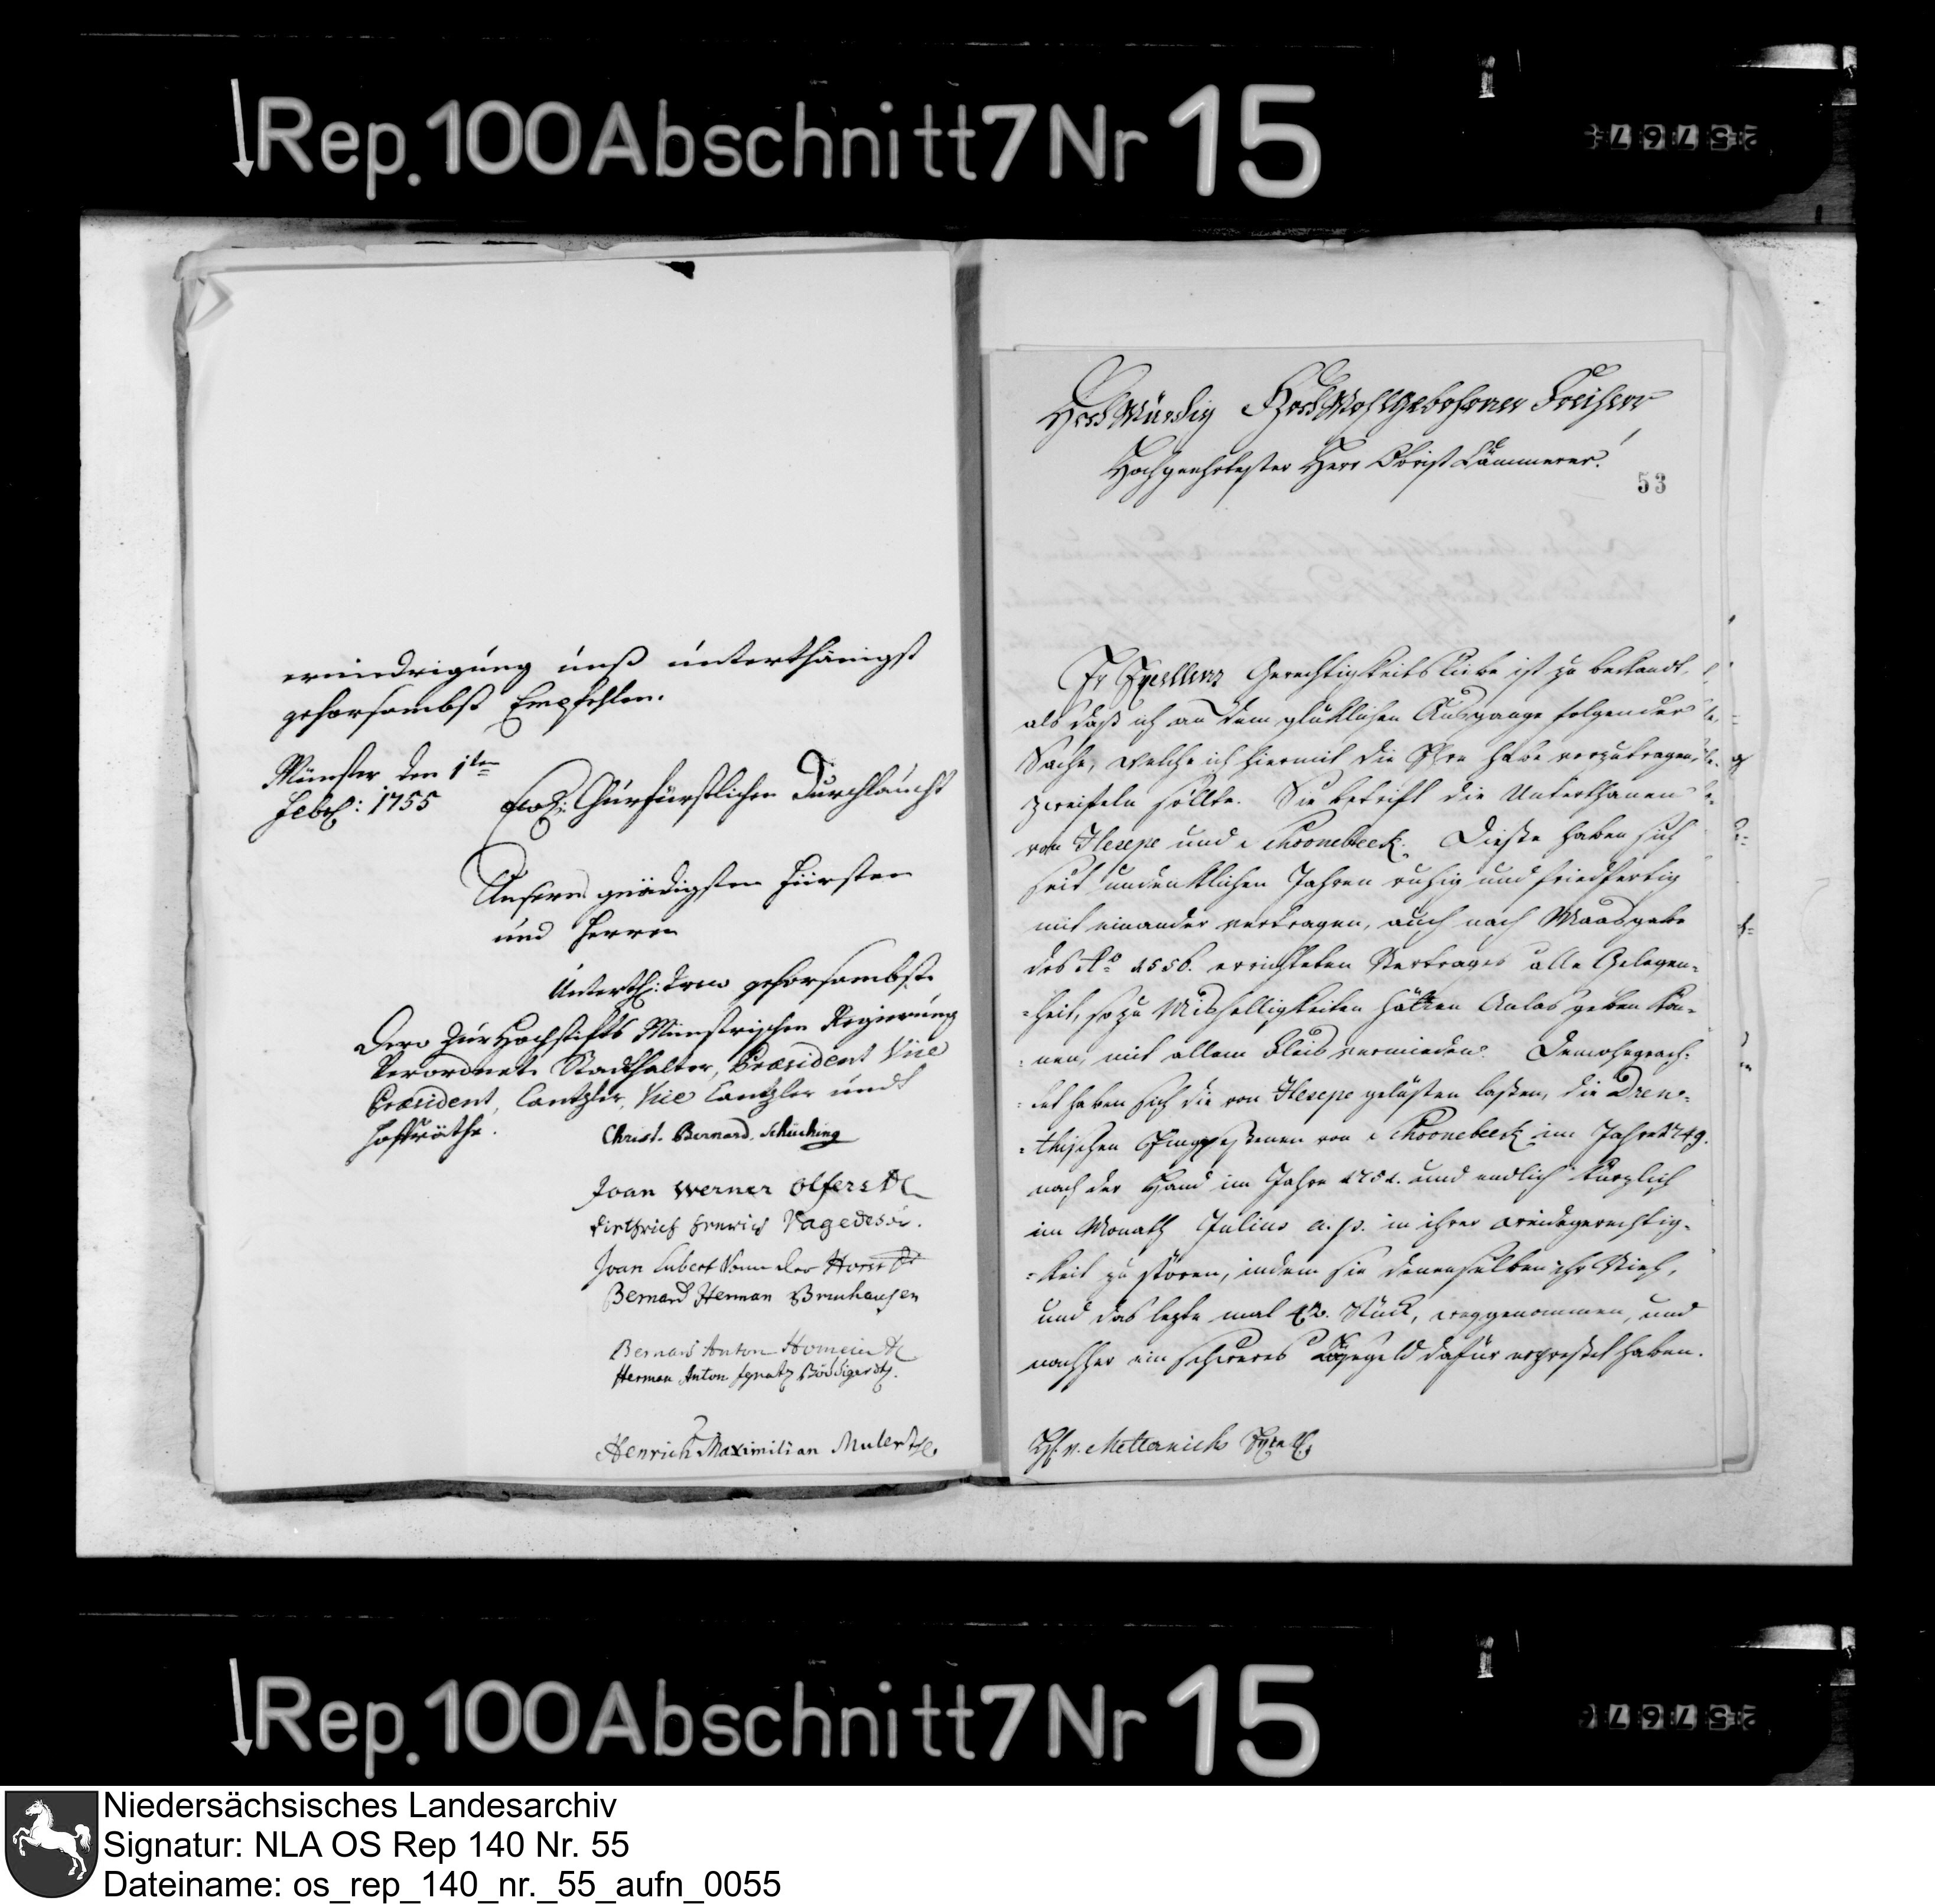 Rep. 100 Abschnitt 7 Nr 15
erniedrigung unß unterthänigst
gehorsambst Empfehlen.
Münster den 1ten
Feb: 1755
Ew: Churfürstlichen Durchlaucht
Unsern gnädigsten Fürsten
und Herrn
Unterth: trew gehorsambste
Dero zur Hochstiffts Münstrischen Regierung
Verordnete Stadthalter, Præsident Vice
Præsident, Cantzler, Vice Cantzler undt
Hoffräthe.
Christ. Bernard. Schücking
Joan Werner Olfers
Dirthrich Henrich Vagedes
Joan Lubert Von der Horst
Bernard Herman Bruhausen
Bernard Anton
Herman Anton Ignatz Bödiger
Henrich Maximilian Mulert
HochWürdig HochWohlGebohrner Freiherr
Hochgeehrtester Herr Obrist Cämmerer!
53
Ihr Excellenz Gerechtigkeits Liebe ist zu bekandt,
als daß ich an dem glüklichen Ausgange folgender
Sache, welche ich hiermit die Ehre habe vorzutragen,
zweifeln sollte. Sie betrift die Unterthanen
von Hesepe und Schoonebeek. Dieße haben sich
seit undenklichen Jahren ruhig und friedfertig
mit einander vertragen, auch nach Maasgabe
des Ao 1556. errichteten Vertrages alle Gelegen-
-heit, so zu Mishelligkeiten hätten Anlas geben kön-
-nen, mit allem Fleis vermieden. Demohngeach-
-tet haben sich die von Hesepe gelüsten laßen, die Dren-
-thischen Eingeseßenen von Schoonebeek im Jahre 1749.
nach der Hand im Jahre 1751. und endlich kürzlich
im Monath Julius a. p. in ihrer Weidegerechtig-
-keit zu stören, indem sie denenselben ihr Vieh,
und das lezte mal Stück, weggenommen, und
nachher ein schweres Lösegeld dafür erpreßet haben.
H. v. Metternich Excell.
Rep. 100 Abschnitt 7 Nr 15
Niedersächsisches Landesarchiv
Signatur: NLA OS Rep 140 Nr. 55
Dateiname: os_rep_140_nr._55_aufn_0055